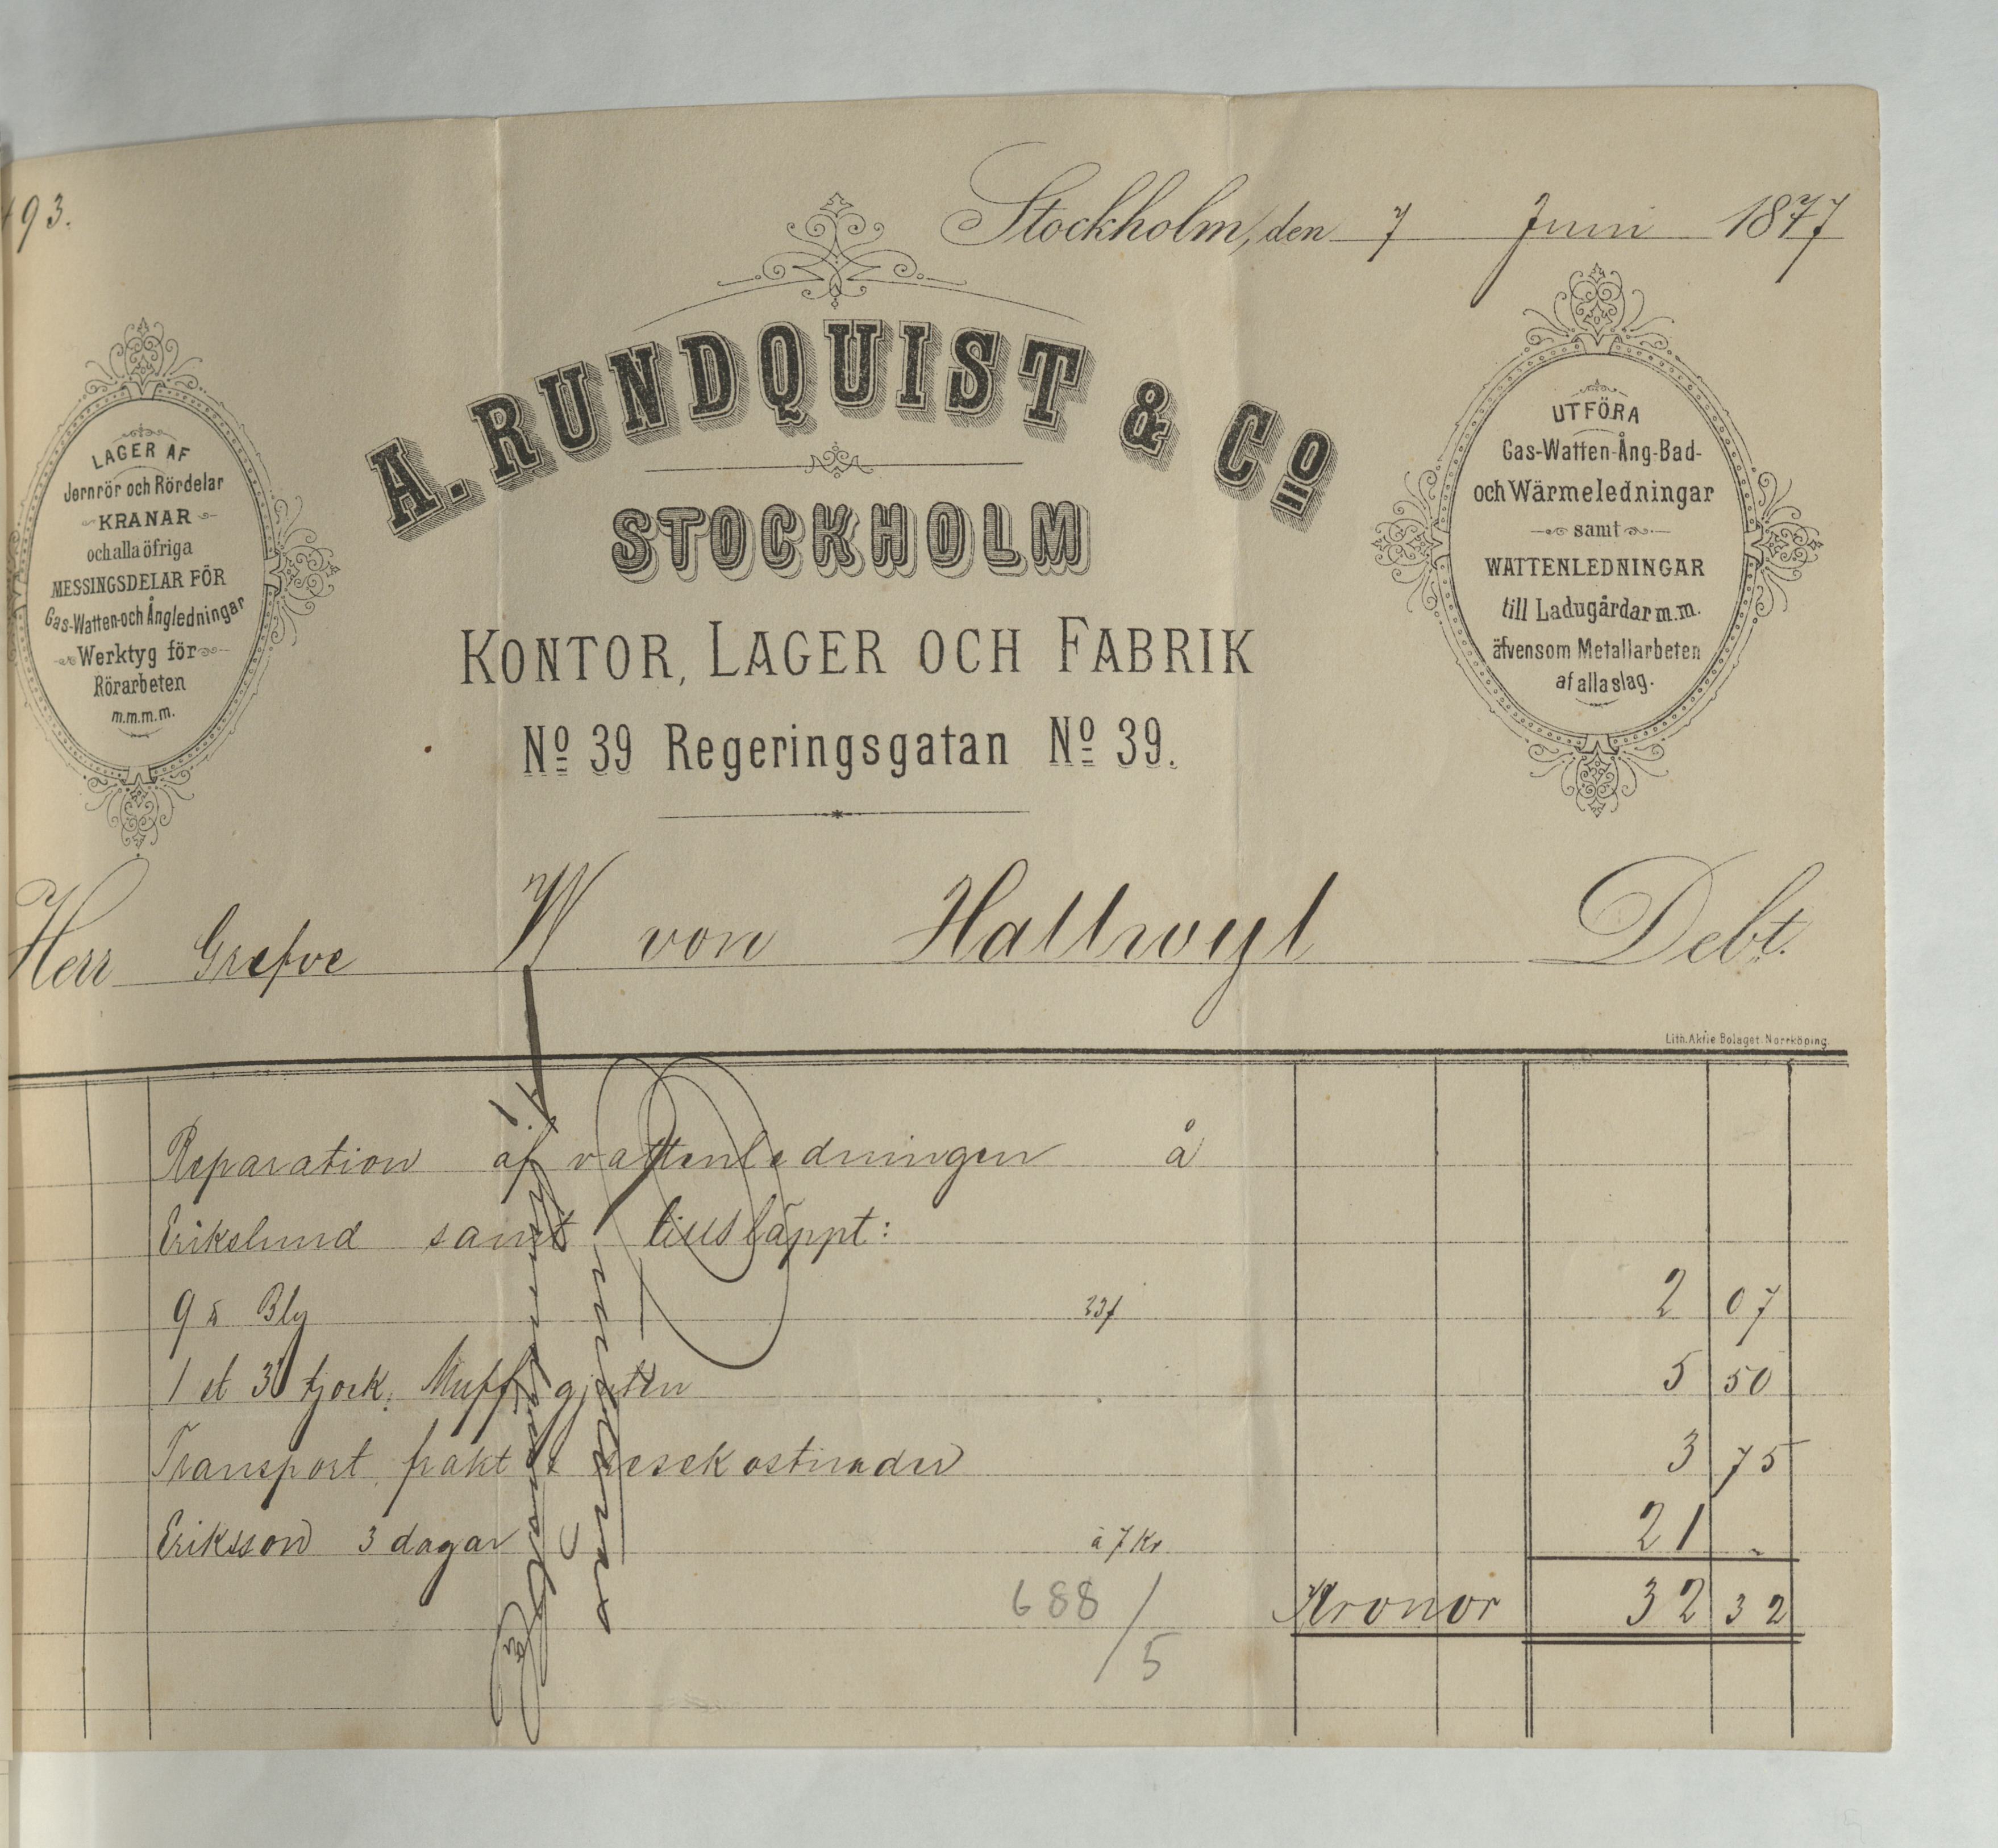 93.
Stockholm, den 7 Juni 1877
A. RUNDQUIST & Co
STOCKHOLM
KONTOR, LAGER OCH FABRIK
No 39 Regeringsgatan No 39.
LAGER AF
Jernrör och Rördelar
KRANAR
och alla öfriga
MESSINGSDELAR FÖR
Gas-Watten-och Ångledningar
Werktyg för
Rörarbeten
m.m.m.m.
UTFÖRA
Gas-Watten-Ång-Bad-
och Wärmeledningar
samt
WATTENLEDNINGAR
till Ladugårdar m.m.
äfvensom Metallarbeten
af alla slag.
Herr Grefve W von Hallwyl Debt.
Lith. Aktie Bolaget Norrköping.
Reparation af vattenledningen å
Erikslund samt
9 Bly 2 07
1 st 3" tjock. Muff gjuten 5 50
Transport frakt & resekostnader 3 75
Eriksson 3 dagar à 7 Kr 21 -
Kronor 32 32
688/5